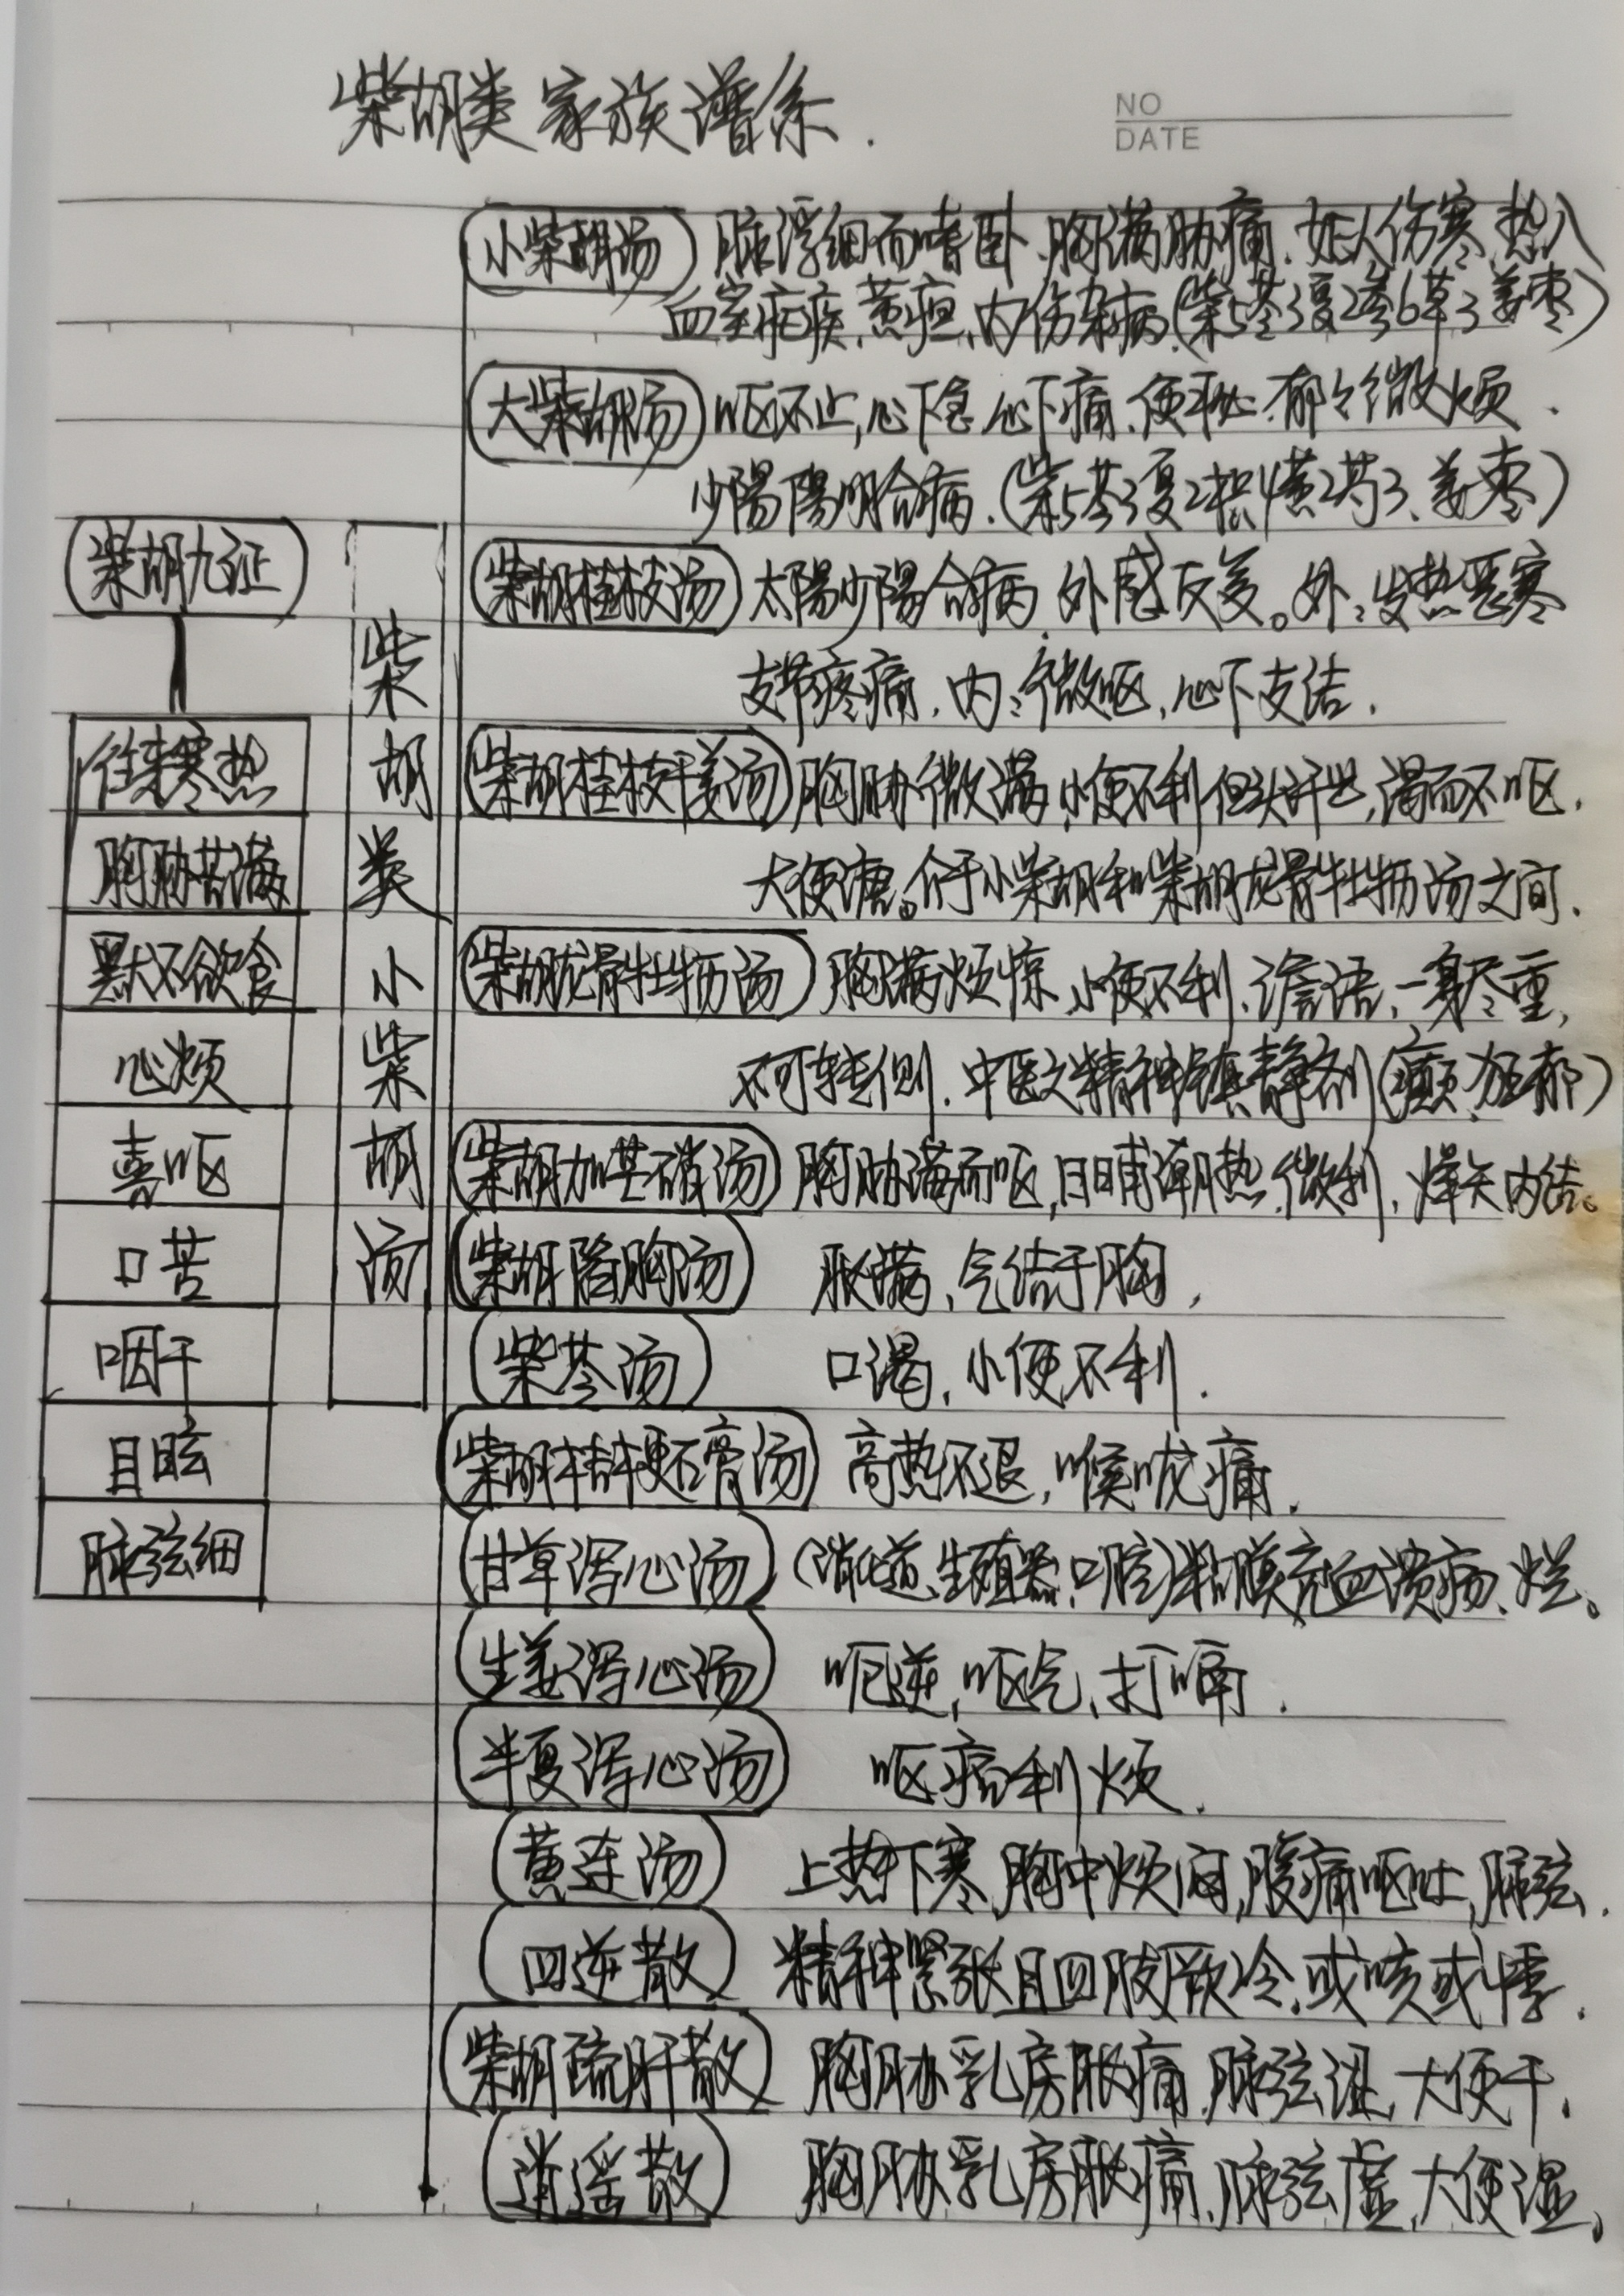 柴胡类家族谱系.
NO
DATE
小柴胡汤 脉浮细而嗜卧.胸满胁痛.妇人伤寒,热入
血室疟疾,黄疸,内伤杂病.(柴5芩3夏2参6草3姜枣)
大柴胡汤 呕不止,心下急,心下痛,便秘,郁々微烦.
少陽陽明合病.(柴5芩3夏2枳1黄2芍3、姜枣)
柴胡桂枝汤 太陽少陽合病,外感反复。外:发热恶寒
支节疼痛.内:微呕,心下支结.
柴胡桂枝干姜汤 胸胁微满,小便不利,但头汗出,渴而不呕.
大便溏。介于小柴胡和柴胡龙骨牡蛎汤之间.
柴胡龙骨牡蛎汤 胸满烦惊,小便不利,谵语,一身尽重,
不可转侧.中医之精神镇静剂(癫.狂.郁)
柴胡加芒硝汤 胸胁满而呕,日晡潮热,微利,燥矢内结。
柴胡陷胸汤 胀满,气结于胸,
柴苓汤 口渴,小便不利.
柴胡桔梗石膏汤 高热不退,喉咙痛.
甘草泻心汤 (消化道、生殖器、口腔)粘膜充血溃疡、烂。
生姜泻心汤 呃逆,呕气,打嗝.
半夏泻心汤 呕痞利烦.
黄连汤 上热下寒,胸中烦闷,腹痛呕吐,脉弦.
四逆散 精神紧张且四肢厥冷,或咳或悸.
柴胡疏肝散 胸胁乳房胀痛.脉弦涩,大便干.
逍遥散 胸胁乳房胀痛.脉弦虚,大便湿。
柴胡类小柴胡汤
柴胡九证
往来寒热
胸胁苦满
默々不欲食
心烦
喜呕
口苦
咽干
目眩
脉弦细